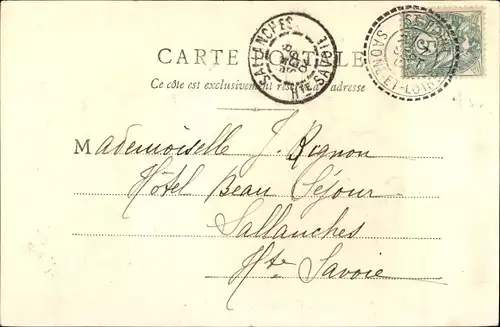 CARTE POSTALE
Ce côté est exclusivement réservé à l'adresse
SALLANCHES
Hte SAVOIE
SAÔNE-ET-LOIRE
5
Mademoiselle J. Rognon
Hôtel Beau Séjour
Sallanches
Hte Savoie